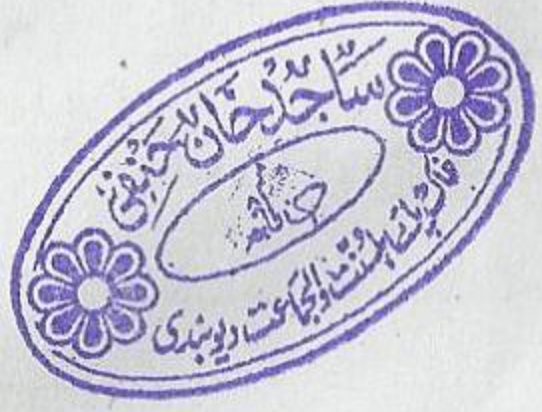 ساجد خان حنفی
خاکپائے اہلسنت والجماعت دیوبندی